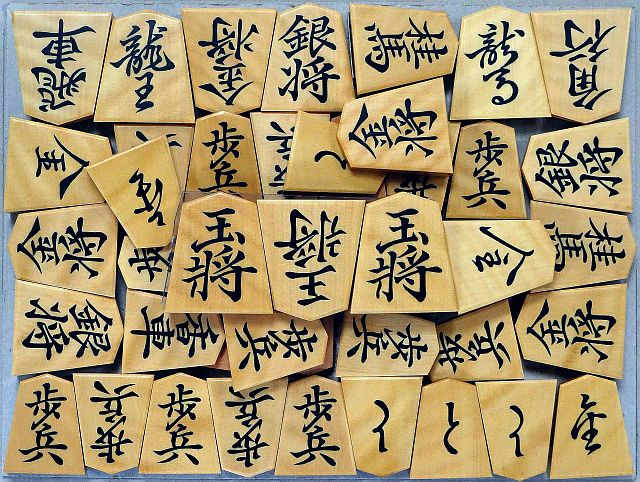 飛車
龍王
金将
銀将
桂馬
龍馬
角行
歩兵
と
金将
歩兵
銀将
金将
玉將
王将
玉將
桂馬
銀将
香車
歩兵
歩兵
歩兵
金将
歩兵
歩兵
歩兵
歩兵
歩兵
と
と
と